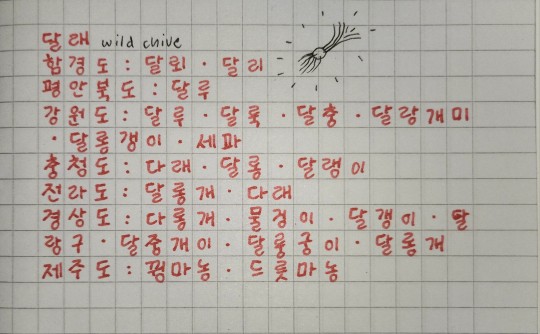 달래 wild chive
함경도: 달뢰·달리
평안북도: 달루
강원도: 달루·달룩·달충·달랑개미
·달롱갱이·세파
충청도: 다래·달롱·달랭이
전라도: 달롱개·다래
경상도: 다롱개·물겅이·달갱이·달
랑구·달중개이·달룽궁이·달롬개
제주도: 꿩마농·드릇마농